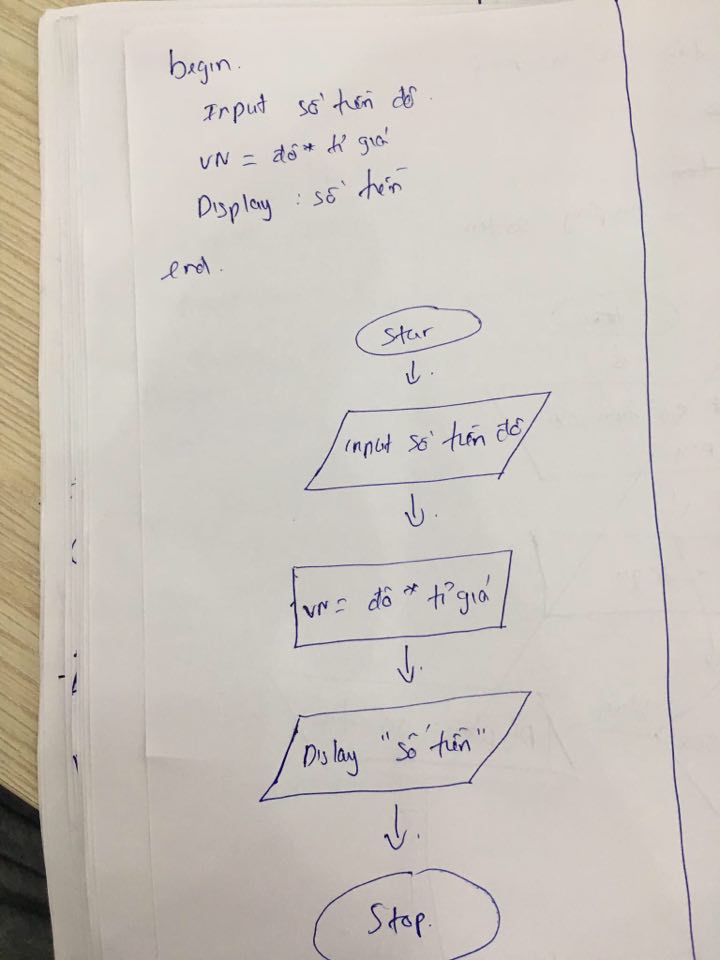 begin.
Input số tiền đô.
VN = đô * tỉ giá
Display : số tiền
end.
Star
input số tiền đô
VN = đô * tỉ giá
Dislay "số tiền"
Stop.